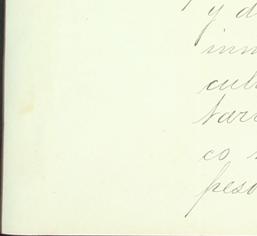 y d
inm
cul
tar
co
peso